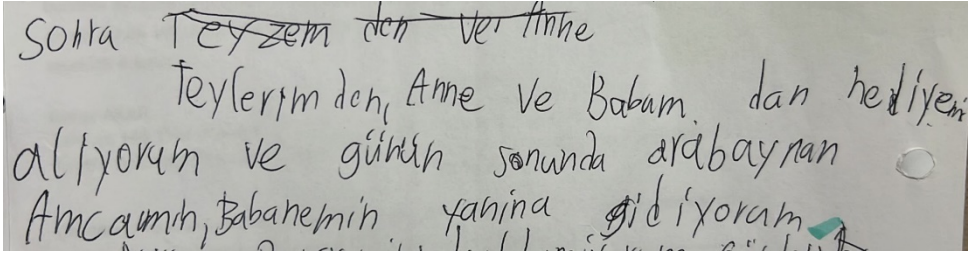 Sonra Teyzem den ver Anne
Teylerimden, Anne ve Babam. dan hediyemi
alıyorum ve günün sonunda arabaynan
Amcamın, Babanemin yanina gidiyorum